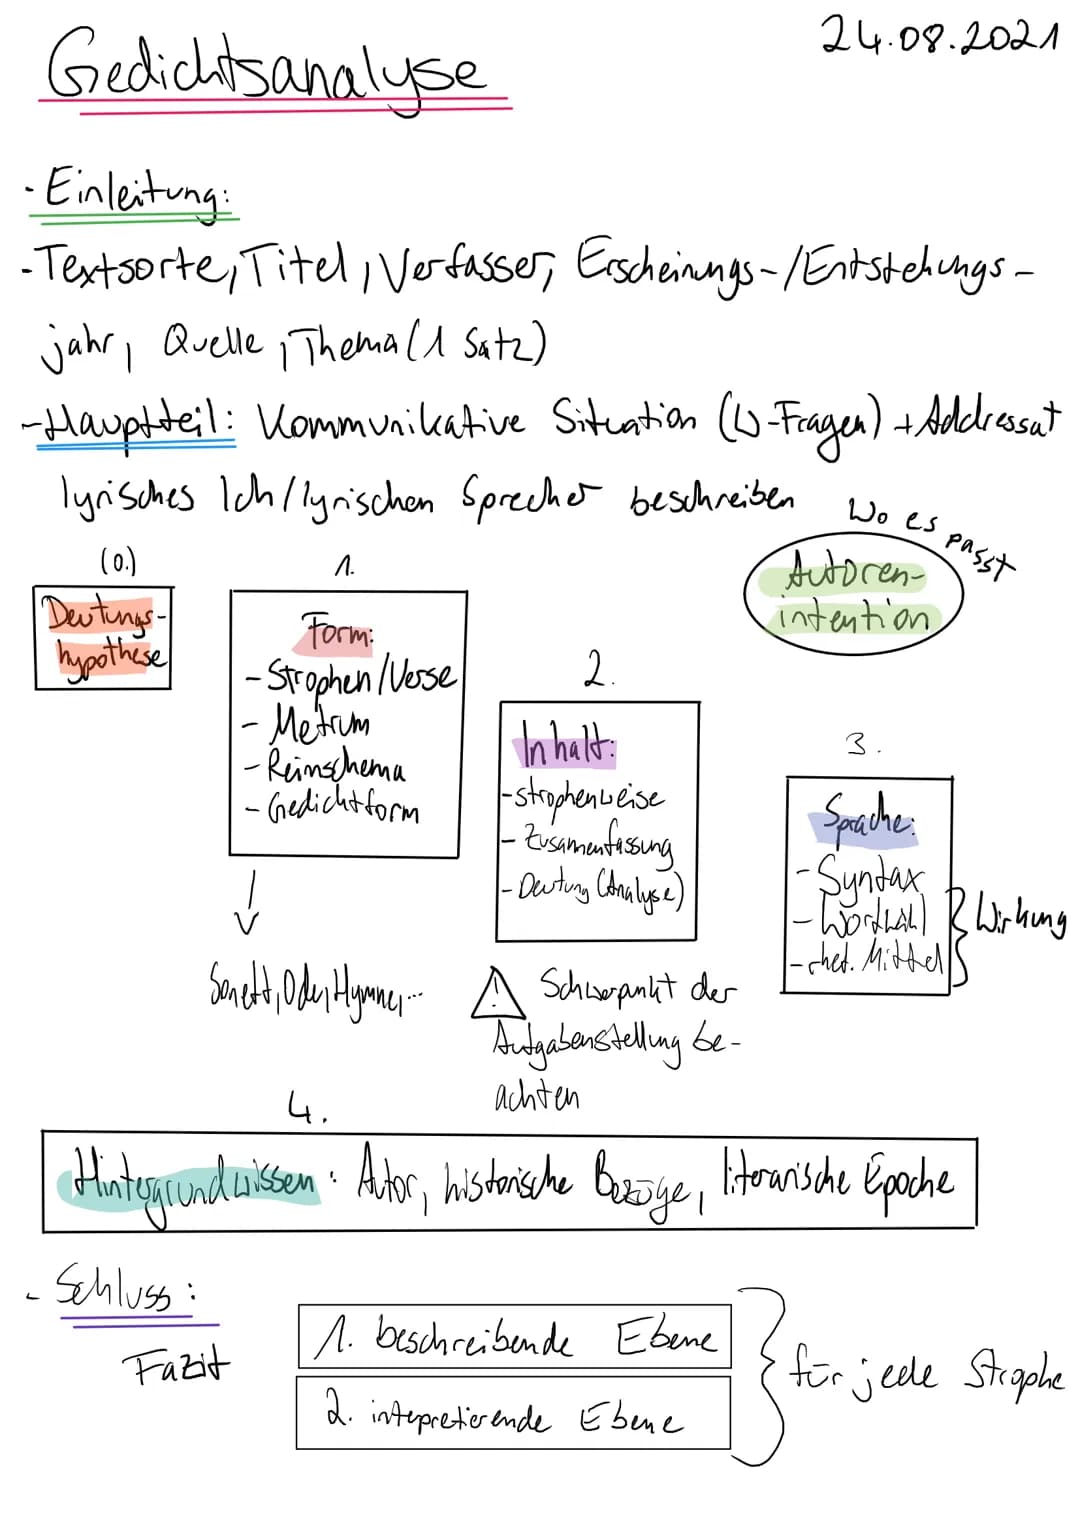 Gedichtsanalyse
24.08.2021
- Einleitung:
- Textsorte, Titel, Verfasser, Erscheinungs-/Entstehungs-
jahr, Quelle, Thema (1 Satz)
- Hauptteil: Kommunikative Situation (W-Fragen) + Addressat
lyrisches Ich/lyrischen Sprecher beschreiben
Wo es passt
Autoren-
intention
(0.)
Deutungs-
hypothese
1.
Form:
- Strophen/Verse
- Metrum
- Reimschema
- Gedichtform
Sonett, Ode, Hymne, ...
2.
Inhalt:
- strophenweise
- Zusamenfassung
- Deutung (Analyse)
! Schwerpunkt der
Aufgabenstellung be-
achten
3.
Sprache:
- Syntax
- Wortwahl
- rhet. Mittel
Wirkung
4.
Hintergrundwissen: Autor, historische Bezüge, literarische Epoche
- Schluss:
Fazit
1. beschreibende Ebene
2. intepretierende Ebene
für jede Strophe